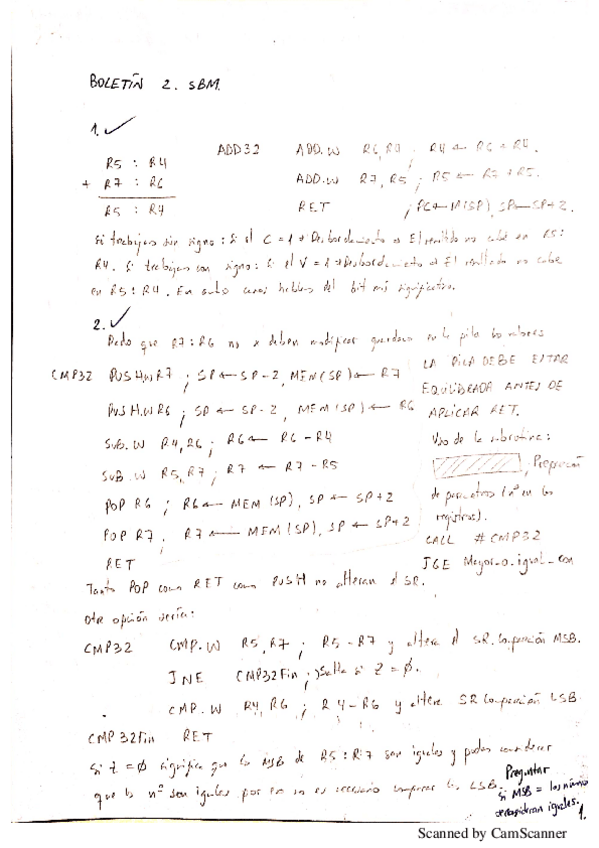 BOLETÍN 2. SBM.
1. ✓
R5 : R4
+ R7 : R6
R5 : R4
ADD32 ADD.W R6,R4 ; R4 ← R6 + R4.
ADD.W R7, R5 ; R5 ← R7 + R5.
RET ; PC ← M(SP), SP ← SP+2.
Si trabajas sin signo: Si el C = 1 → Desbordamiento → El resultado no cabe en R5:
R4. Si trabajas con signo: Si el V = 1 → Desbordamiento → El resultado no cabe
en R5:R4. En ambos casos hablamos del bit más significativo.
2. ✓
Dado que R7:R6 no se deben modificar guardamos en la pila los valores
CMP32 PUSH.W R7 ; SP ← SP-2, MEM(SP) ← R7
PUSH.W R6 ; SP ← SP-2, MEM(SP) ← R6
SUB.W R4,R6 ; R6 ← R6 - R4
SUB.W R5,R7 ; R7 ← R7 - R5
POP R6 ; R6 ← MEM(SP), SP ← SP+2
POP R7 ; R7 ← MEM(SP), SP ← SP+2
RET
LA PILA DEBE ESTAR
EQUILIBRADA ANTES DE
APLICAR RET.
Uso de la subrutina:
; Preparación
de parámetros (nº en los
registros).
CALL #CMP32
JGE Mayor_o_igual_con
Tanto POP como RET como PUSH no alteran el SR.
Otra opción sería:
CMP32 CMP.W R5,R7 ; R5-R7 y altera el SR. Comparación MSB.
JNE CMP32Fin ; Salta si Z = 0.
CMP.W R4,R6 ; R4-R6 y altera SR Comparación LSB.
CMP32Fin RET
Si Z = 0 significa que los MSB de R5:R7 son iguales y podes considerar
que los nº son iguales por en no es necesario comparar los LSB.
Preguntar
si MSB = los números
se consideran iguales.
1.
Scanned by CamScanner